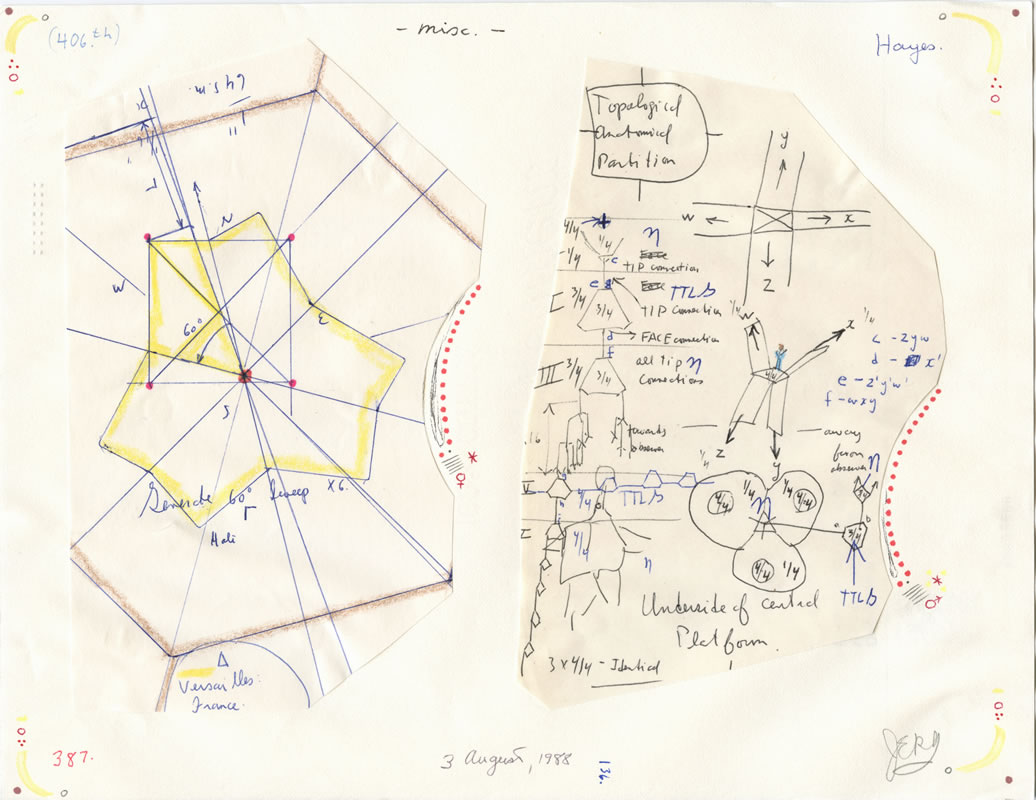 (406.th)
- misc. -
Hayes.
64 s.m.
N
W
60°
S
ε
Generate 60° Sweep x6.
Γ
Versailles:
France.
Topological
Anatomical
Partition
y
w
x
z
4/4
1/4
-1/4
c
η
TIP connection
e
TTLB
TIP connection
I
3/4
3/4
d
FACE connection
f
all tip η
connections
III
3/4
3/4
towards
observer
away
from
observer
η
1/4
w
x
1/4
z
y
1/4
c - zyw
d - x'
e - z'y'w'
f - wxy
.16
TTLB
4/4
4/4
η
4/4
1/4
1/4
4/4
η
4/4
1/4
TTLB
Underside of central
Platform.
3 x 4/4 - Identical
387.
3 August, 1988
136.
JERY